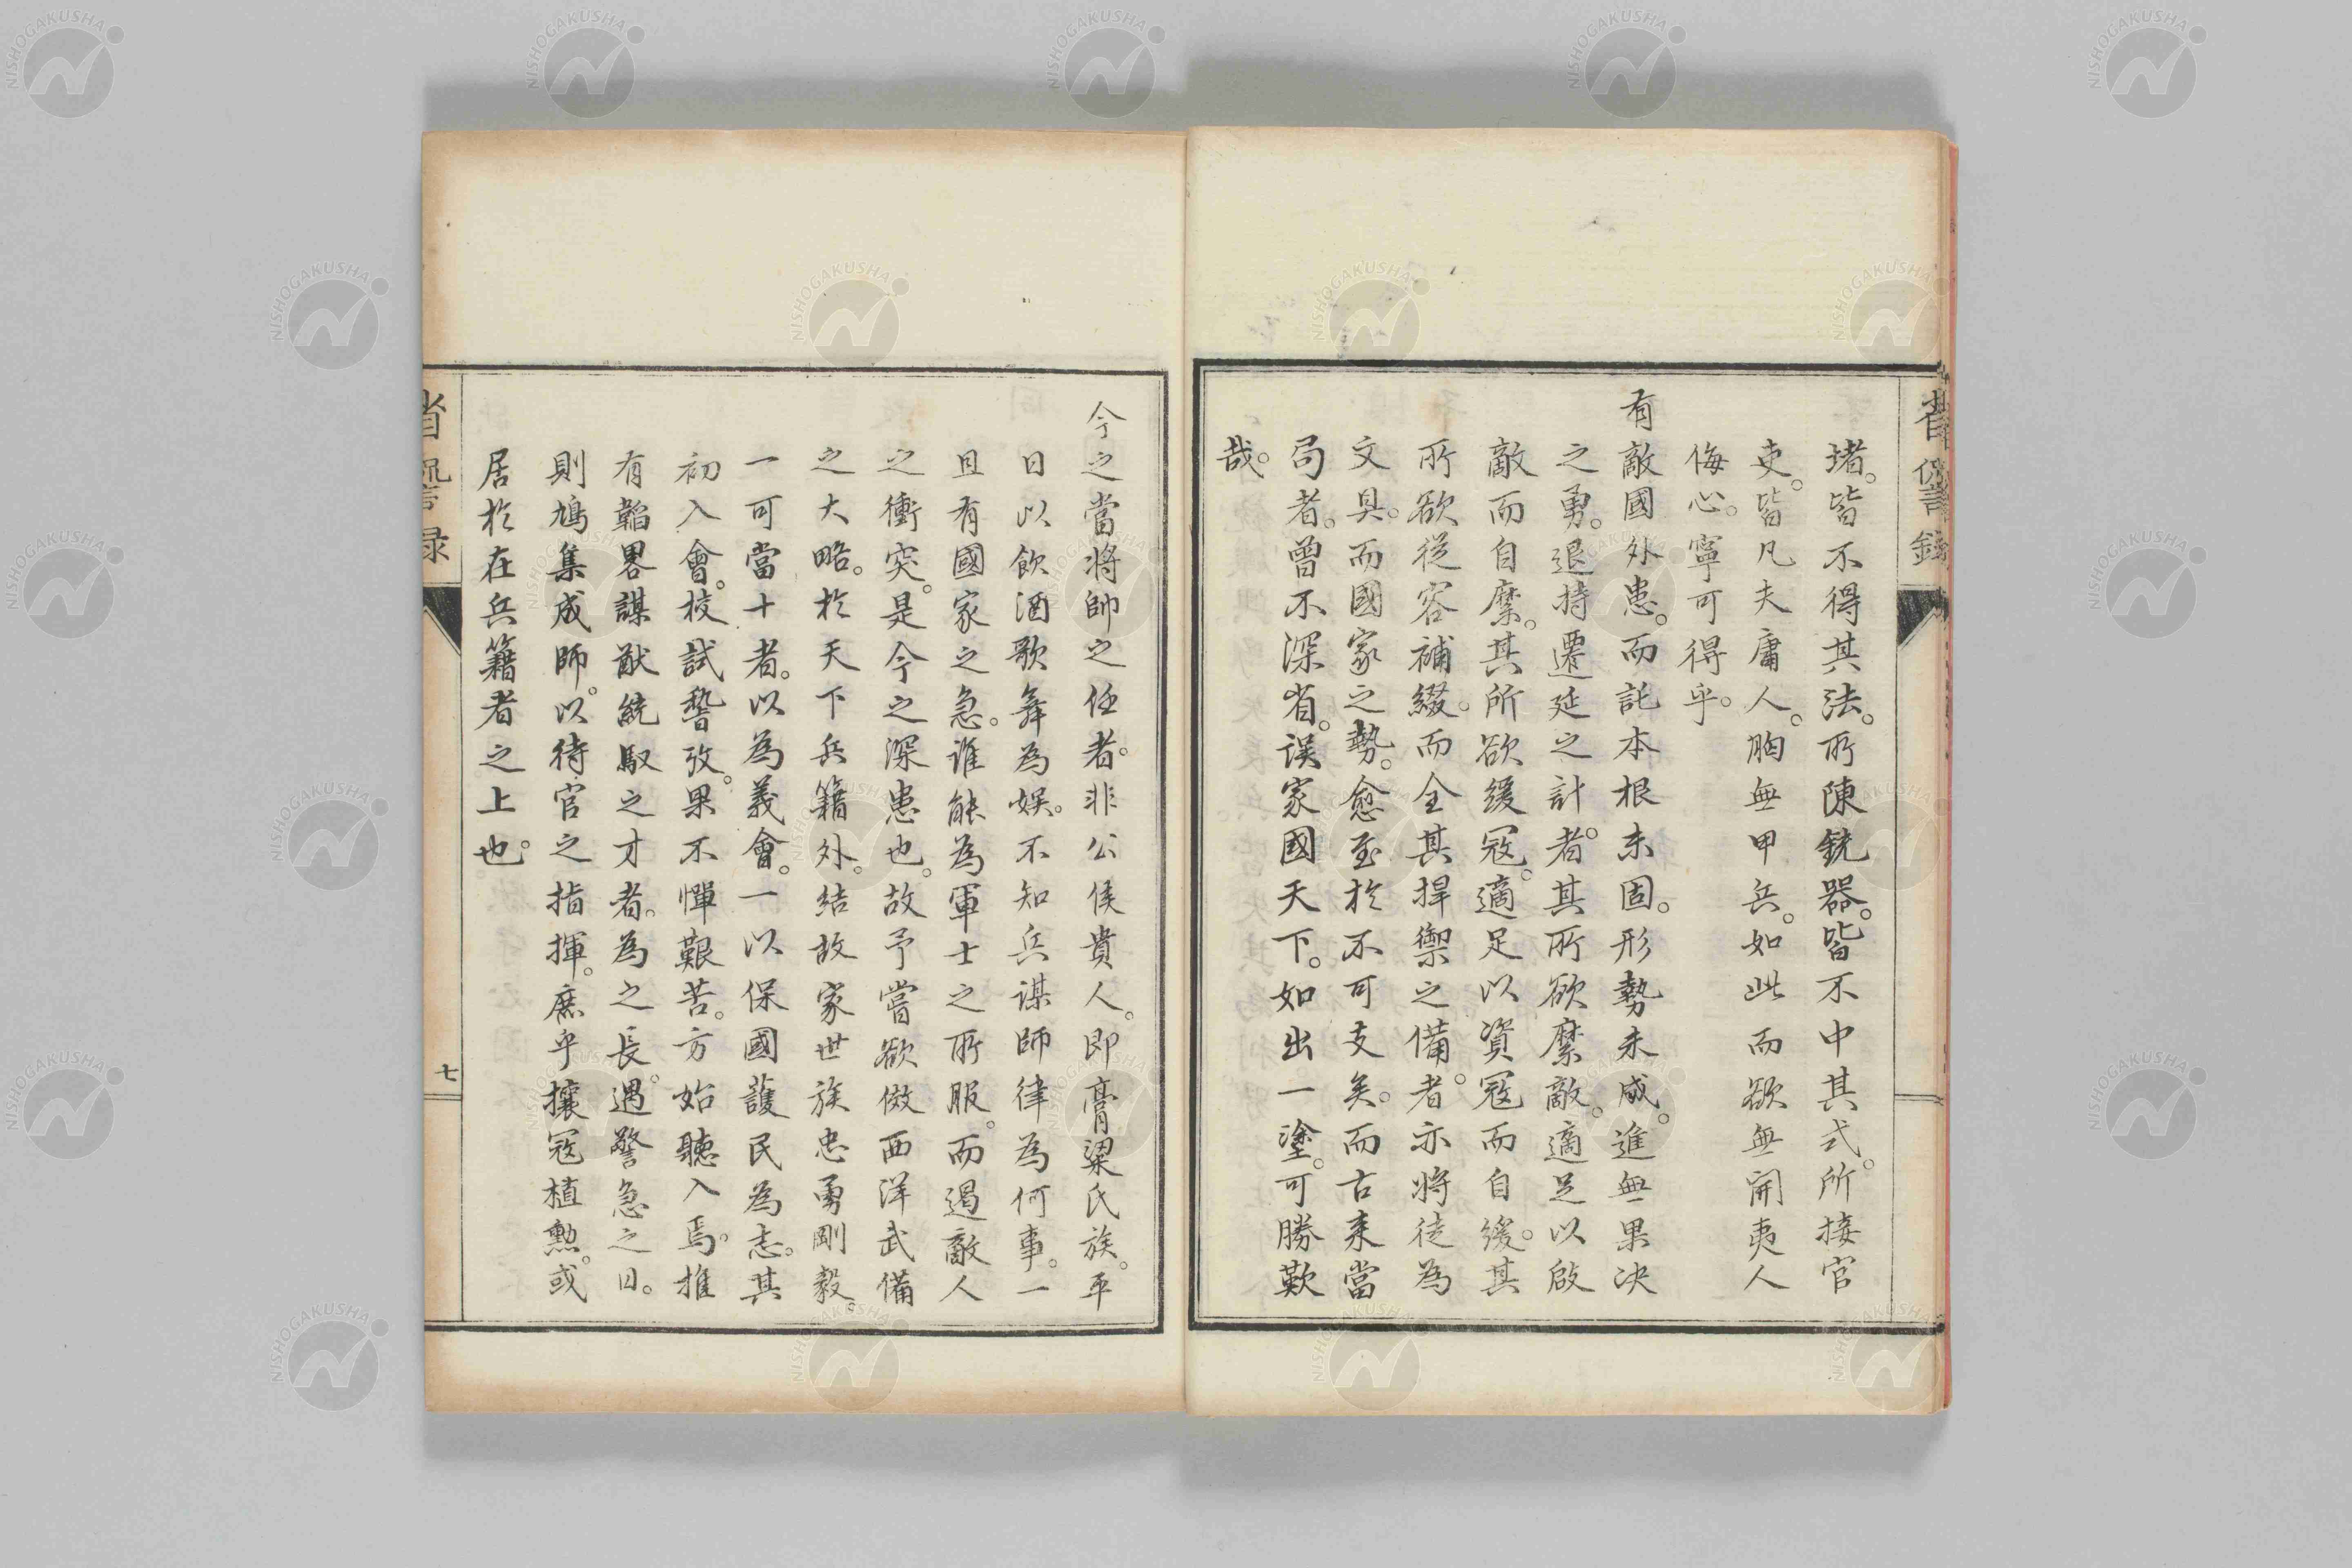 省諐錄
堵。皆不得其法。所陳銃器。皆不中其式。所接官
吏。皆凡夫庸人。胸無甲兵。如此而欲無開夷人
侮心。寧可得乎。
有敵國外患。而託本根未固。形勢未成。進無果決
之勇。退持遷延之計者。其所欲縻敵。適足以啟
敵而自縻。其所欲緩寇。適足以資寇而自緩。其
所欲從容補綴。而全其捍禦之備。者亦將徒為
文具。而國家之勢。愈至於不可支矣。而古來當
局者。曾不深省。误家國天下。如出一塗。可勝歎
哉。
今之當將帥之任者。非公侯貴人。即膏粱氏族。平
日以飲酒歌舞為娛。不知兵謀師律為何事。一
旦有國家之急。誰能為軍士之所服。而遏敵人
之衝突。是今之深患也。故予嘗欲倣西洋武備
之大略。於天下兵籍外。結故家世族忠勇剛毅。
一可當十者。以為義會。一以保國護民為志。其
初入會。校試誓攷。果不憚艱苦。方始聽入焉。推
有韜畧謀猷統馭之才者。為之長。遇警急之日。
則鳩集成師。以待官之指揮。庶乎攘寇植勲。或
居於在兵籍者之上也。
省諐录
七